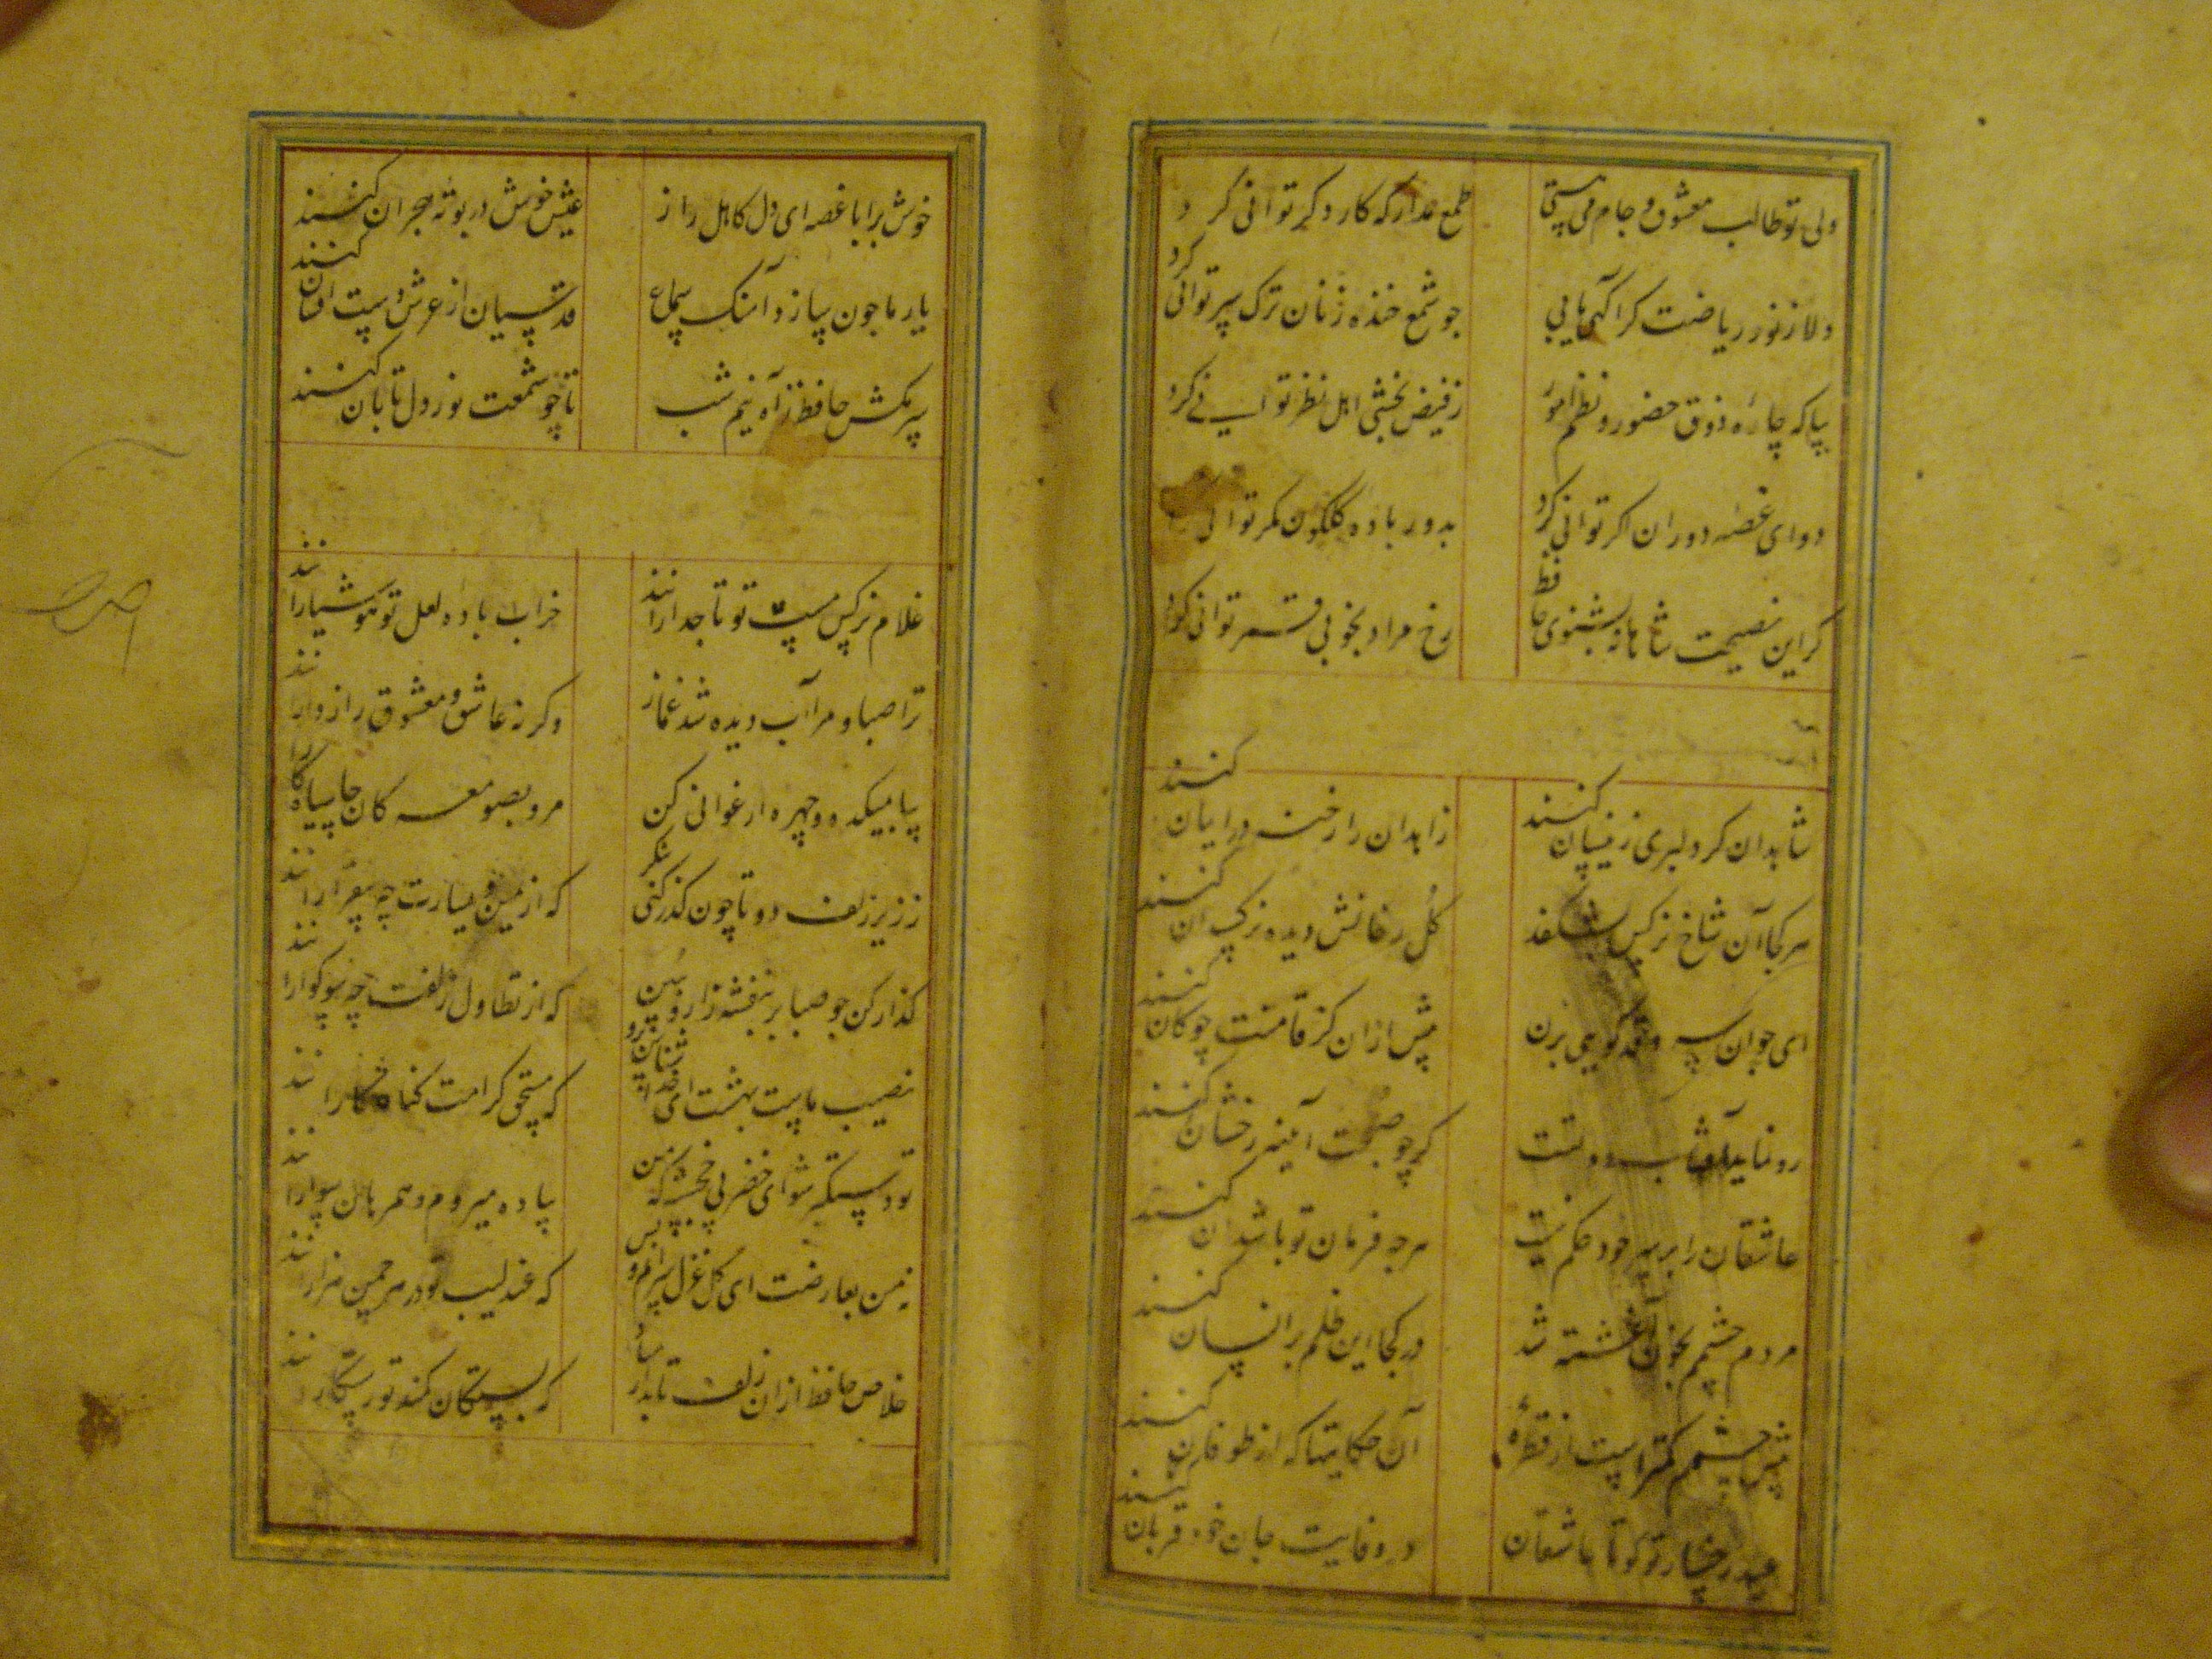 ولی تو طالب معشوق و جام می پستی طمع مدار که کار دکر توانی کرد
دلا ز نور ریاضت کر آکهی یابی جو شمع خنده زنان ترک سر توانی کرد
بیا که چاره ذوق حضور و نظم امور ز فیض بخشی اهل نظر توانی کرد
دوای غصه دوران اکر توانی کرد بدور باده کلکون مکر توانی
کر این نصیحت شاهانه بشنوی حافظ رخ مراد بخوبی توانی کرد
شاهدان کر دلبری زینسان کنند زاهدان را رخنه در ایمان کنند
هر کجا آن شاخ نرکس بشکفد کل رخانش دیده نرکسدان کنند
ای جوان سرو قد کویی بزن پیش از آن کز قامتت چوکان کنند
رو نماید آفتاب دولتت کر چو صبحت آینه رخشان کنند
عاشقان را بر سر خود حکم نیست هرجه فرمان تو باشد آن کنند
مردم چشمم بخون آغشته شد در کجا این ظلم بر انسان کنند
پیش چشمم کمتر است از قطره آن حکایتها که از طوفان کنند
عید رخسار تو کو تا عاشقان در وفایت جان خود قربان کنند
خوش برا با غصه ای دل کاهل راز عیش خوش در بوته هجران کنند
یار ما جون سازد آهنک سماع قدسیان از عرش دست افشان کنند
سر مکش حافظ ز آه نیم شب تا چو شمعت نور دل تابان کنند
غلام نرکس مست تو تاجدارانند خراب باده لعل تو هوشیارانند
ترا صبا و مرا آب دیده شد غماز وکر نه عاشق و معشوق رازدارانند
بیا بمیکده و چهره ارغوانی کن مرو بصومعه کانجا سیاه کارانند
ز زیر زلف دوتا چون کذر کنی بنکر که از یمین و یسارت چه بیقرارانند
کذار کن جو صبا بر بنفشه زار و ببین که از تطاول زلفت چه سوکوارانند
نصیب ماست بهشت ای خدا شناس برو که مستحق کرامت کناه کارانند
تو دستکیر شو ای خضر پی خجسته که من پیاده میروم و همرهان سوارانند
نه من بعارضت ای کل غزل سرایم و بس که عندلیب تو در هر جمن هزارانند
خلاص حافظ از آن زلف تابدار مباد که بستکان کمند تو رستکارانند